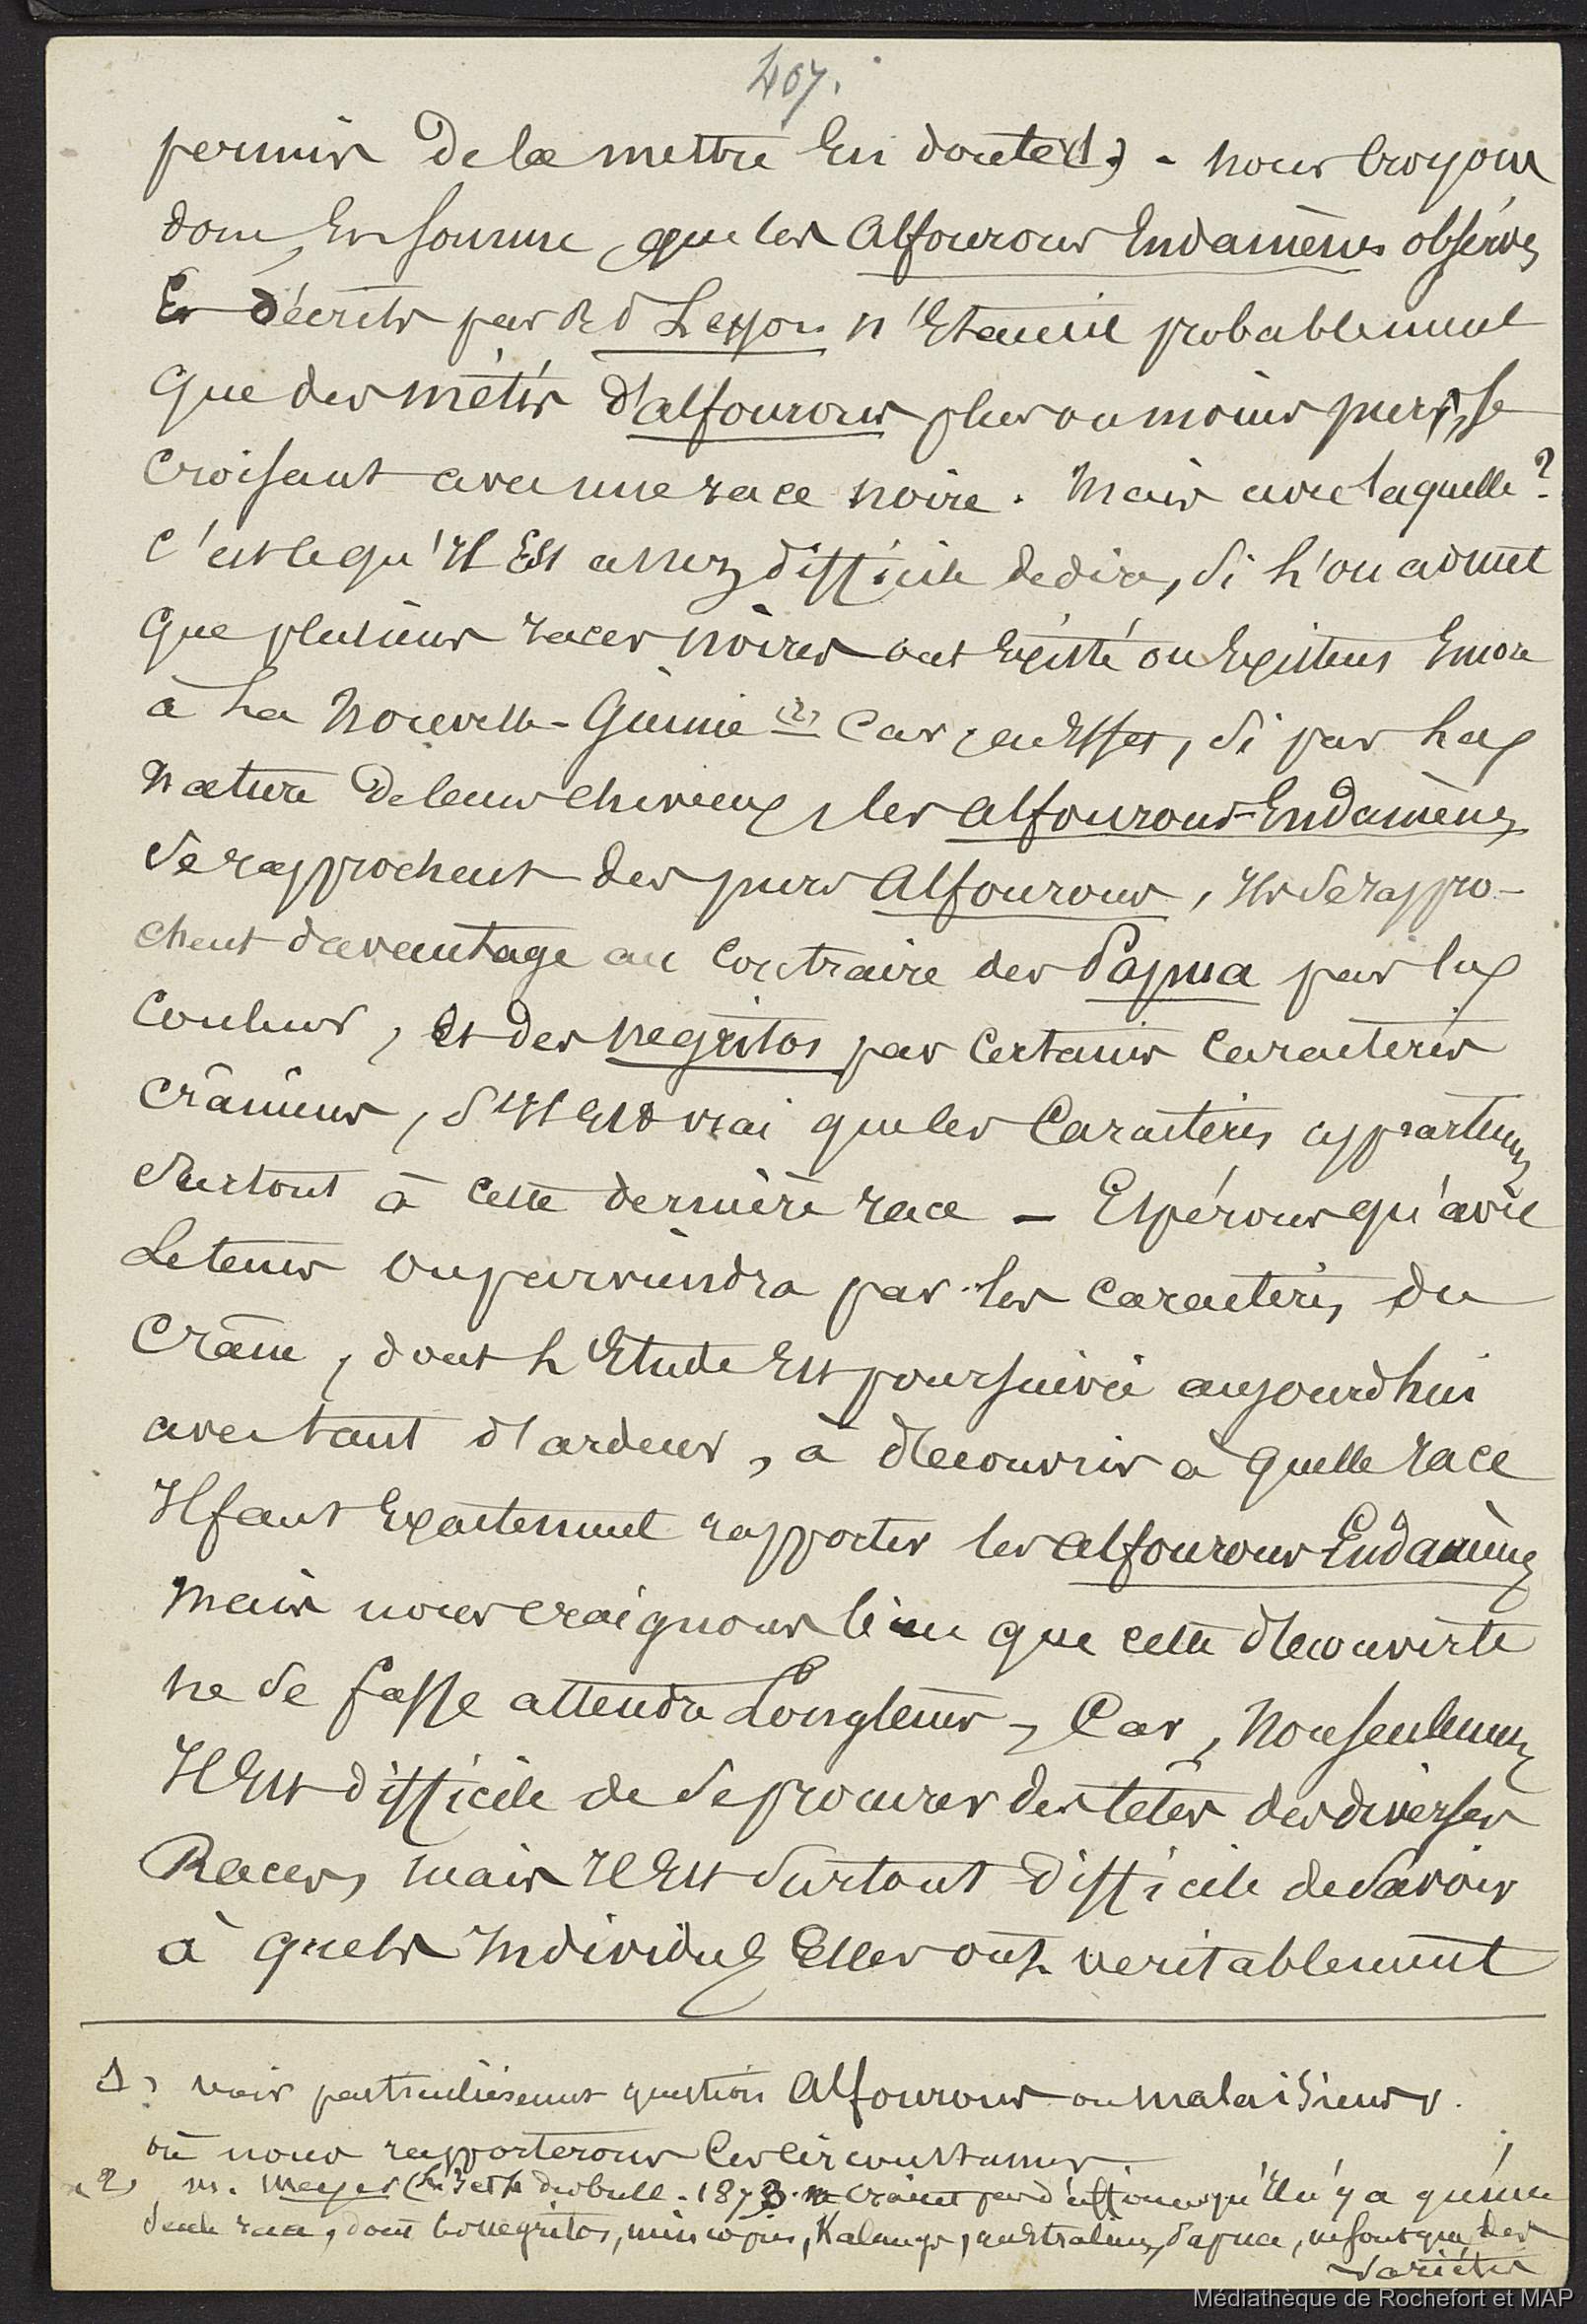 407.
permis de la mettre en doute (1) - nous croyons
donc, en somme, que les Alfourous Endamènes observés
et décrits par R d Lesson n'étaient probablement
que des métis d'alfourous plus ou moins purs, se
croisant avec une race noire. Mais avec laquelle?
C'est ce qu'il est assez difficile de dire, si l'on admet
que plusieurs races noires ont existé ou existent encore
à la Nouvelle-Guinée (2) Car, en effet, si par la
nature de leurs cheveux, les alfourous-Endamènes
se rapprochent des purs Alfourous, ils se rappro-
chent davantage au contraire des Papua par la
couleur, et des negritos par certains caractères
crâniens, s'il est vrai que les caractères appartiennent
surtout à cette dernière race - Espérons qu'avec
le tems on parviendra par les caractères du
crâne, dont l'étude est poursuivie aujourd'hui
avec tant d'ardeur, à découvrir à quelle race
il faut exactement rapporter les alfourous Endamènes
mais nous craignons bien que cette découverte
ne se fasse attendre longtems, Car, non seulement
il est difficile de se procurer des têtes des diverses
Races, mais il est surtout difficile de savoir
à quels individus elles ont veritablement
1) voir particulièrement question Alfourous ou malaisiens.
où nous rapporterons les circonstances.
(2) m. Meyer des bull. 1873. ne craint pas d'affirmer qu'il n'y a qu'une
seule race, dont les negritos, mincopies, Kalangs, australiens, Papua, ne sont que des
variétés
Médiathèque de Rochefort et MAP